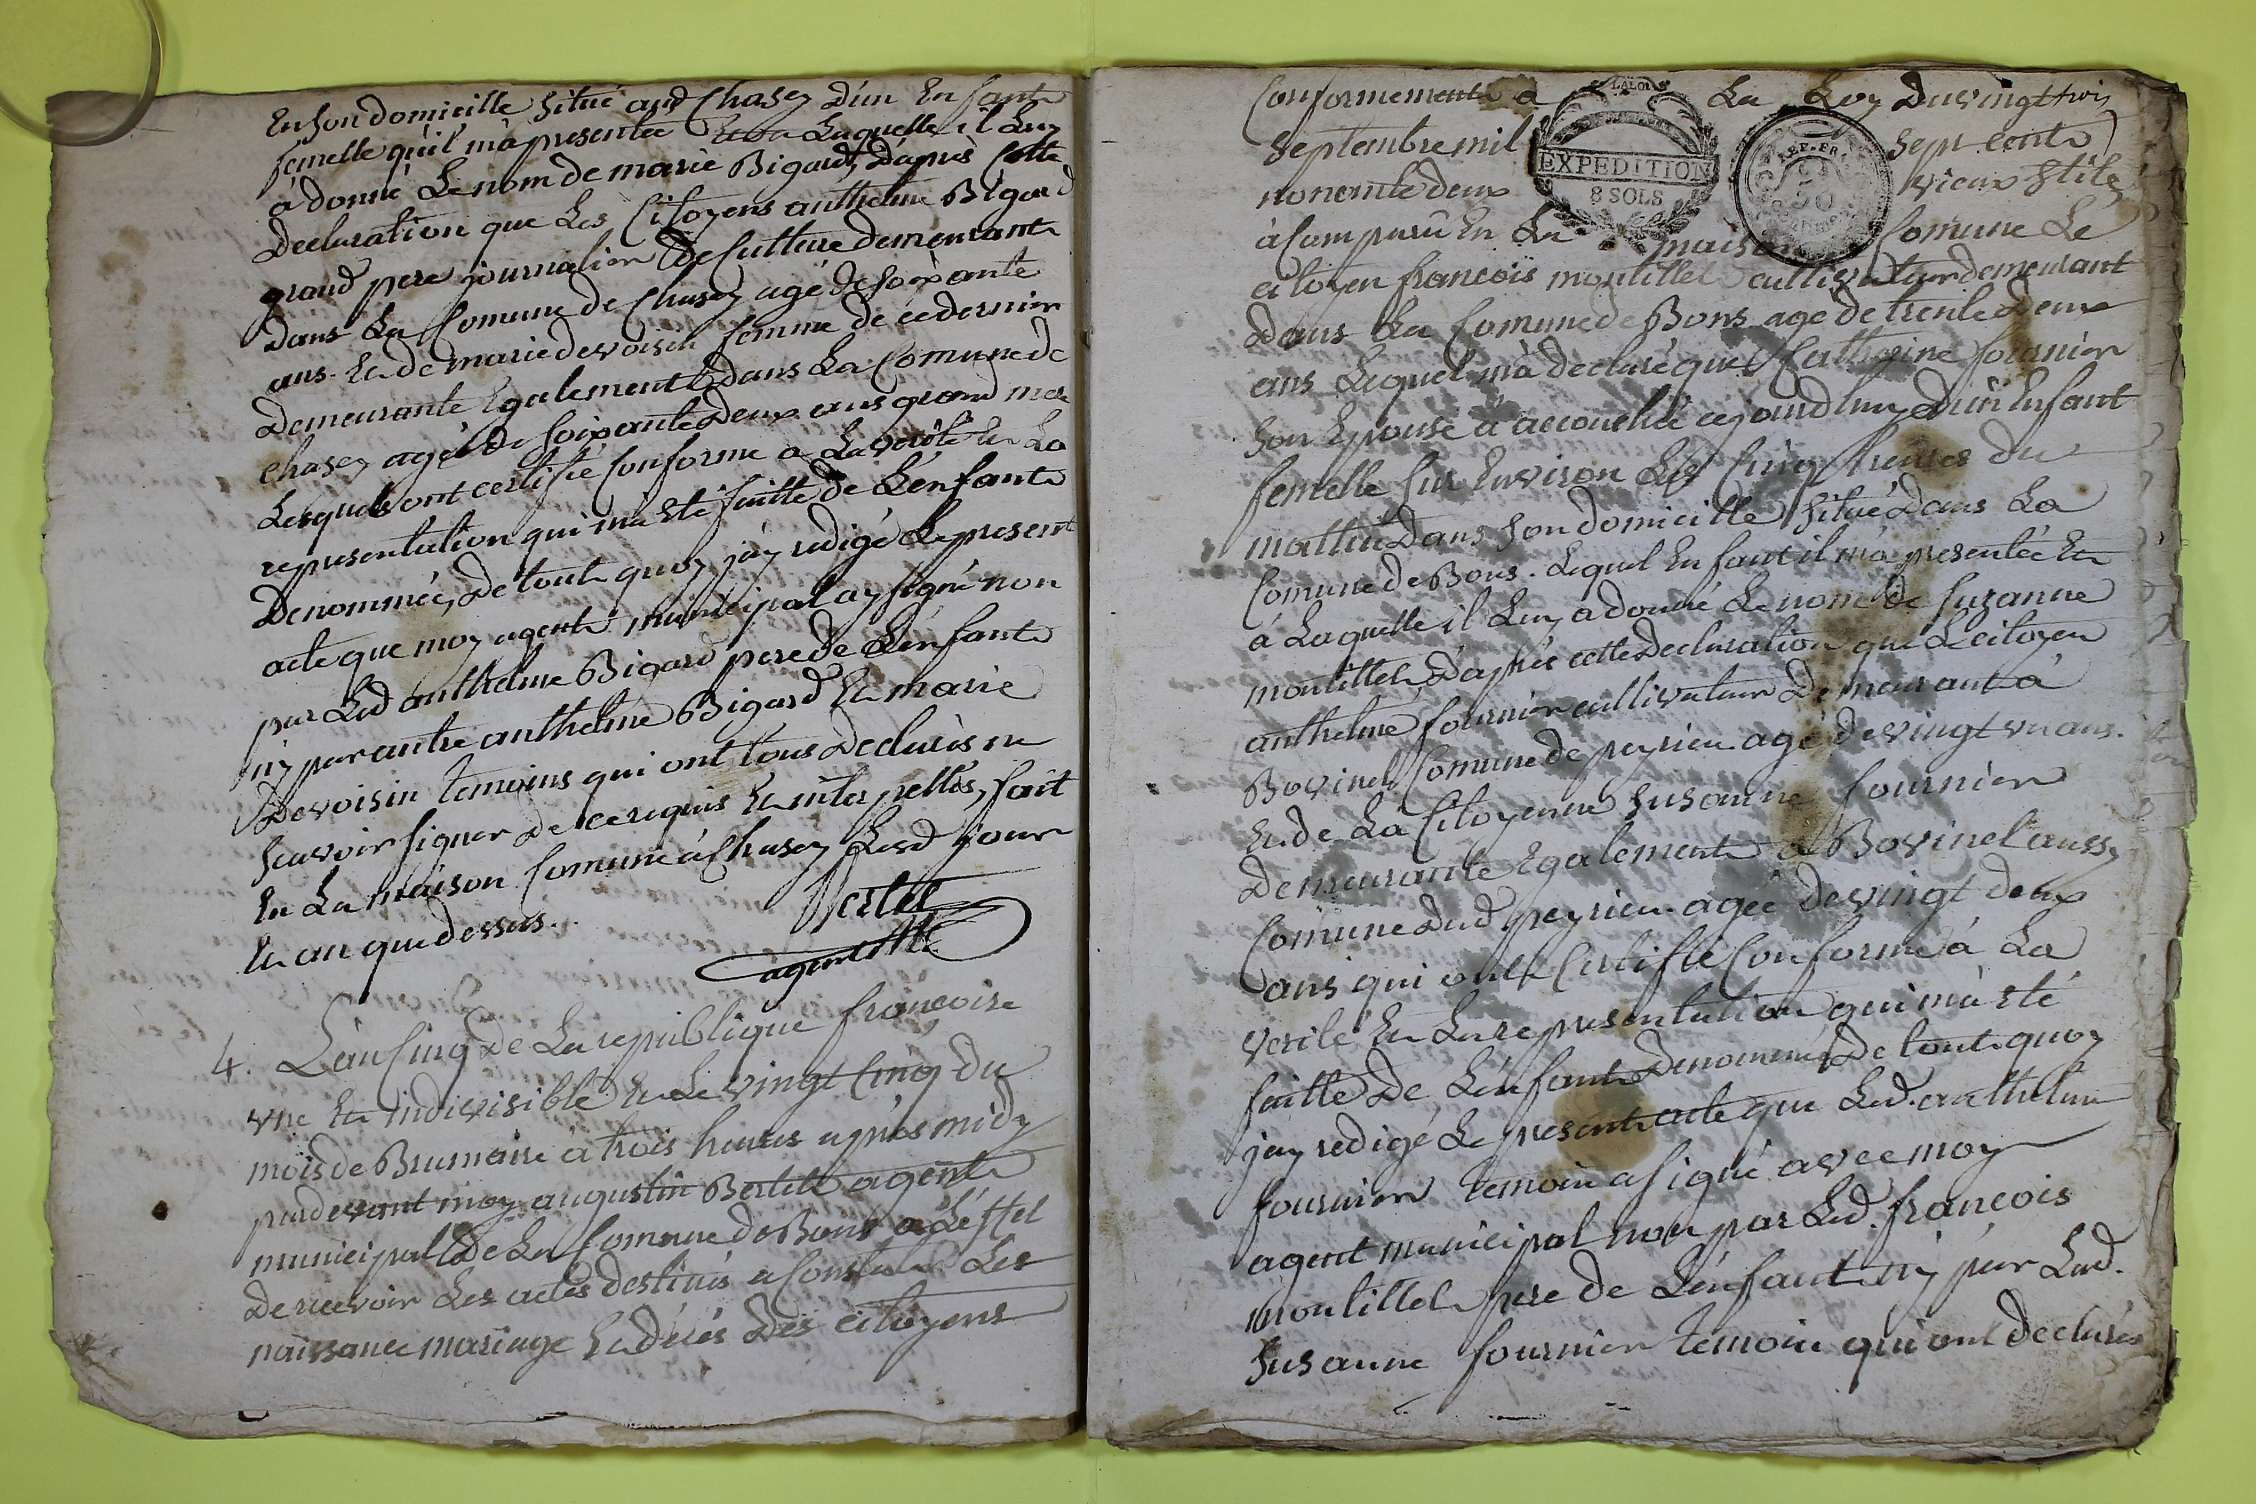 En son domicille situé aud Chasey D'un Enfant
femelle qu'il m'a presentée Et a Laquelle il Luy
à donné Le nom de marie Bigard, D'après Cette
Declaration que Les Citoyens anthelme Bigard
grand pere journalier De Culture demeurant
Dans La Comune de Chasey agé de soixante
ans. Et de marie devoisin femme de ce dernier
Demeurante Egalement Dans La Comune de
Chasey agée De soixante Deux ans grand mere
Lesquels ont certifié Conforme a La verité Et La
representation qui m'a été faitte de L'enfant
Denommée, De tout quoy j'ay redigé Le present
acte que moy agent municipal ay signé non
par Led anthelme Bigard pere de L'enfant
ny par autre anthelme Bigard Et marie
Devoisin temoins qui ont tous Declarés ne
scavoir signer de ce requis Et interpellés, fait
En La maison Comune à Chasey Lesd jour
Et an que dessus.
Bertet
agent Mal
4. L'an Cinq De La republique françoise
vne Et indivisible Et Le vingt Cinq du
mois de Brumaire à trois heures après midy
pardevant moy augustin Bertet agent
municipal De La Comune de Bons a L'effet
De recevoir Les actes destinés a Constater Les
naissance mariage Et décés Des citoyens
Conformement a La Loy Du vingt trois
Septembre mil sept cent
nonante deux vieux stile
LA LOI
EXPEDITION
8 SOLS
REP. FRA.
50
à Comparû En La maison Comune Le
citoyen francois montillet cultivateur demeurant
Dans La Comune de Bons agé de trente Deux
ans Lequel m'a declaré que Catherine fournier
son Epouse a accouchée ce jourd'huy D'un Enfant
femelle sur Environ Les Cinq heures du
mattin Dans son domicille situé Dans La
Comune de Bons. Lequel Enfant il m'a presentée Et
à Laquelle il Luy a donné Le nom de suzanne
montillet D'après cette Declaration que Le citoyen
anthelme fournier cultivateur Demeurant à
Bovinel Comune de peyrieu agé de vingt vn ans.
Et de La Citoyenne susanne fournier
Demeurante Egalement a Bovinel aussy
Comune Dud peyrieu agée de vingt deux
ans qui ont Certifié Conforme à La
verité Et La representation qui m'a été
faitte De L'enfant Denommé De tout quoy
j'ay redigé Le present acte que Led. anthelme
fournier temoin a signé avec moy
agent municipal non par Led. francois
montillet pere de L'enfant ny par Lad.
susanne fournier temoin qui ont declarés